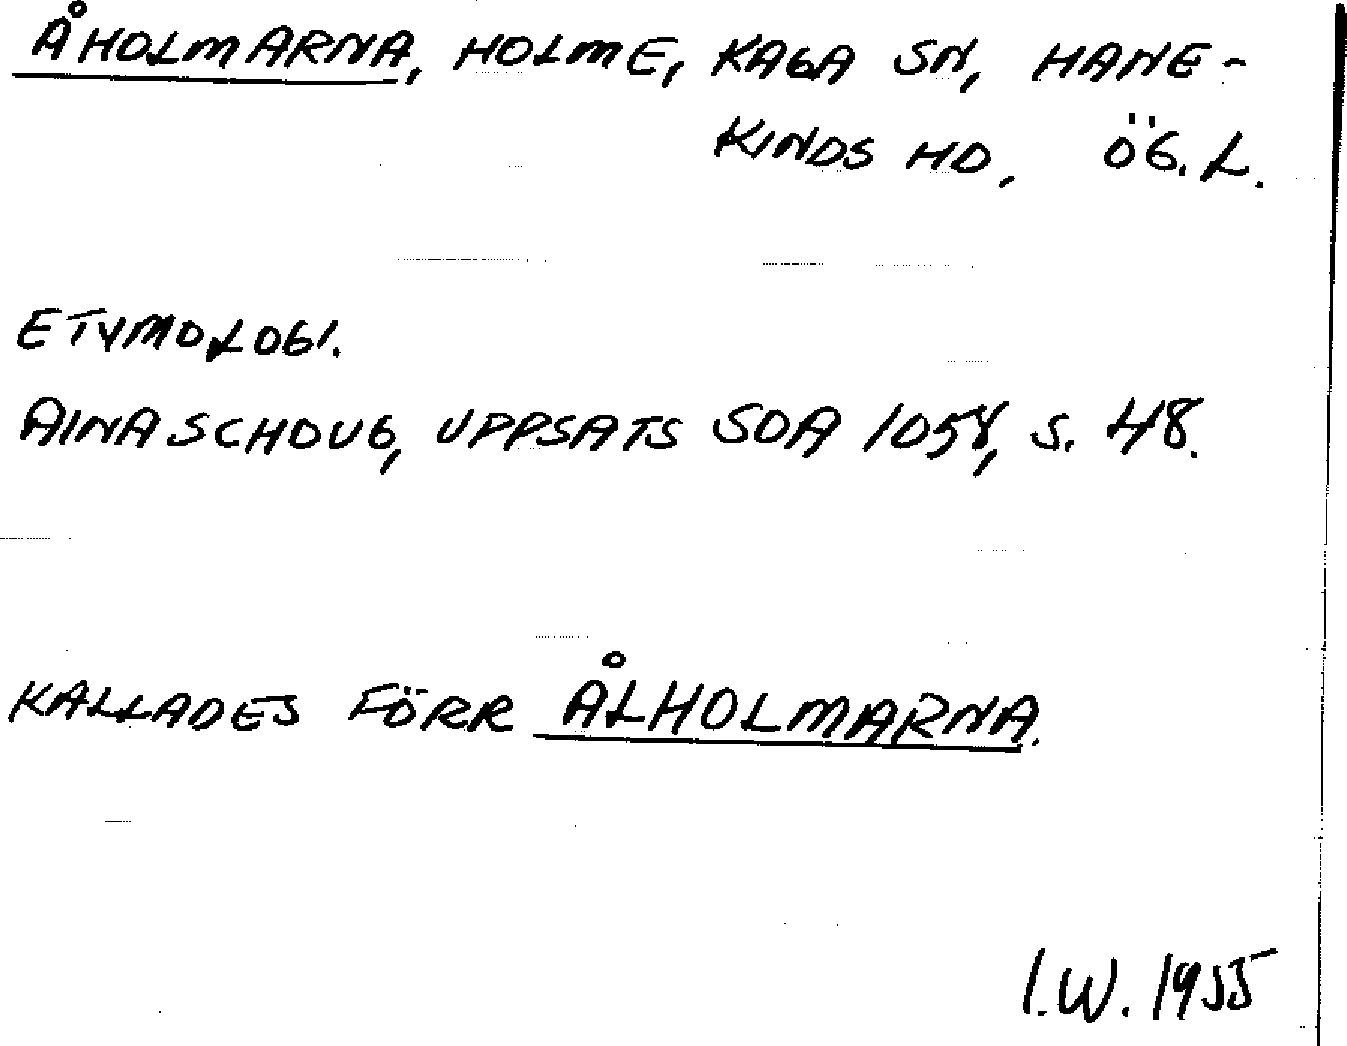 ÅHOLMARNA, HOLME, KAGA SN, HANE-
KINDS HD, ÖG. L.
ETYMOLOGI.
AINA SCHOUG, UPPSATS SOA 1058, S. 48.
KALLADES FÖRR ÅLHOLMARNA.
I.W. 1955